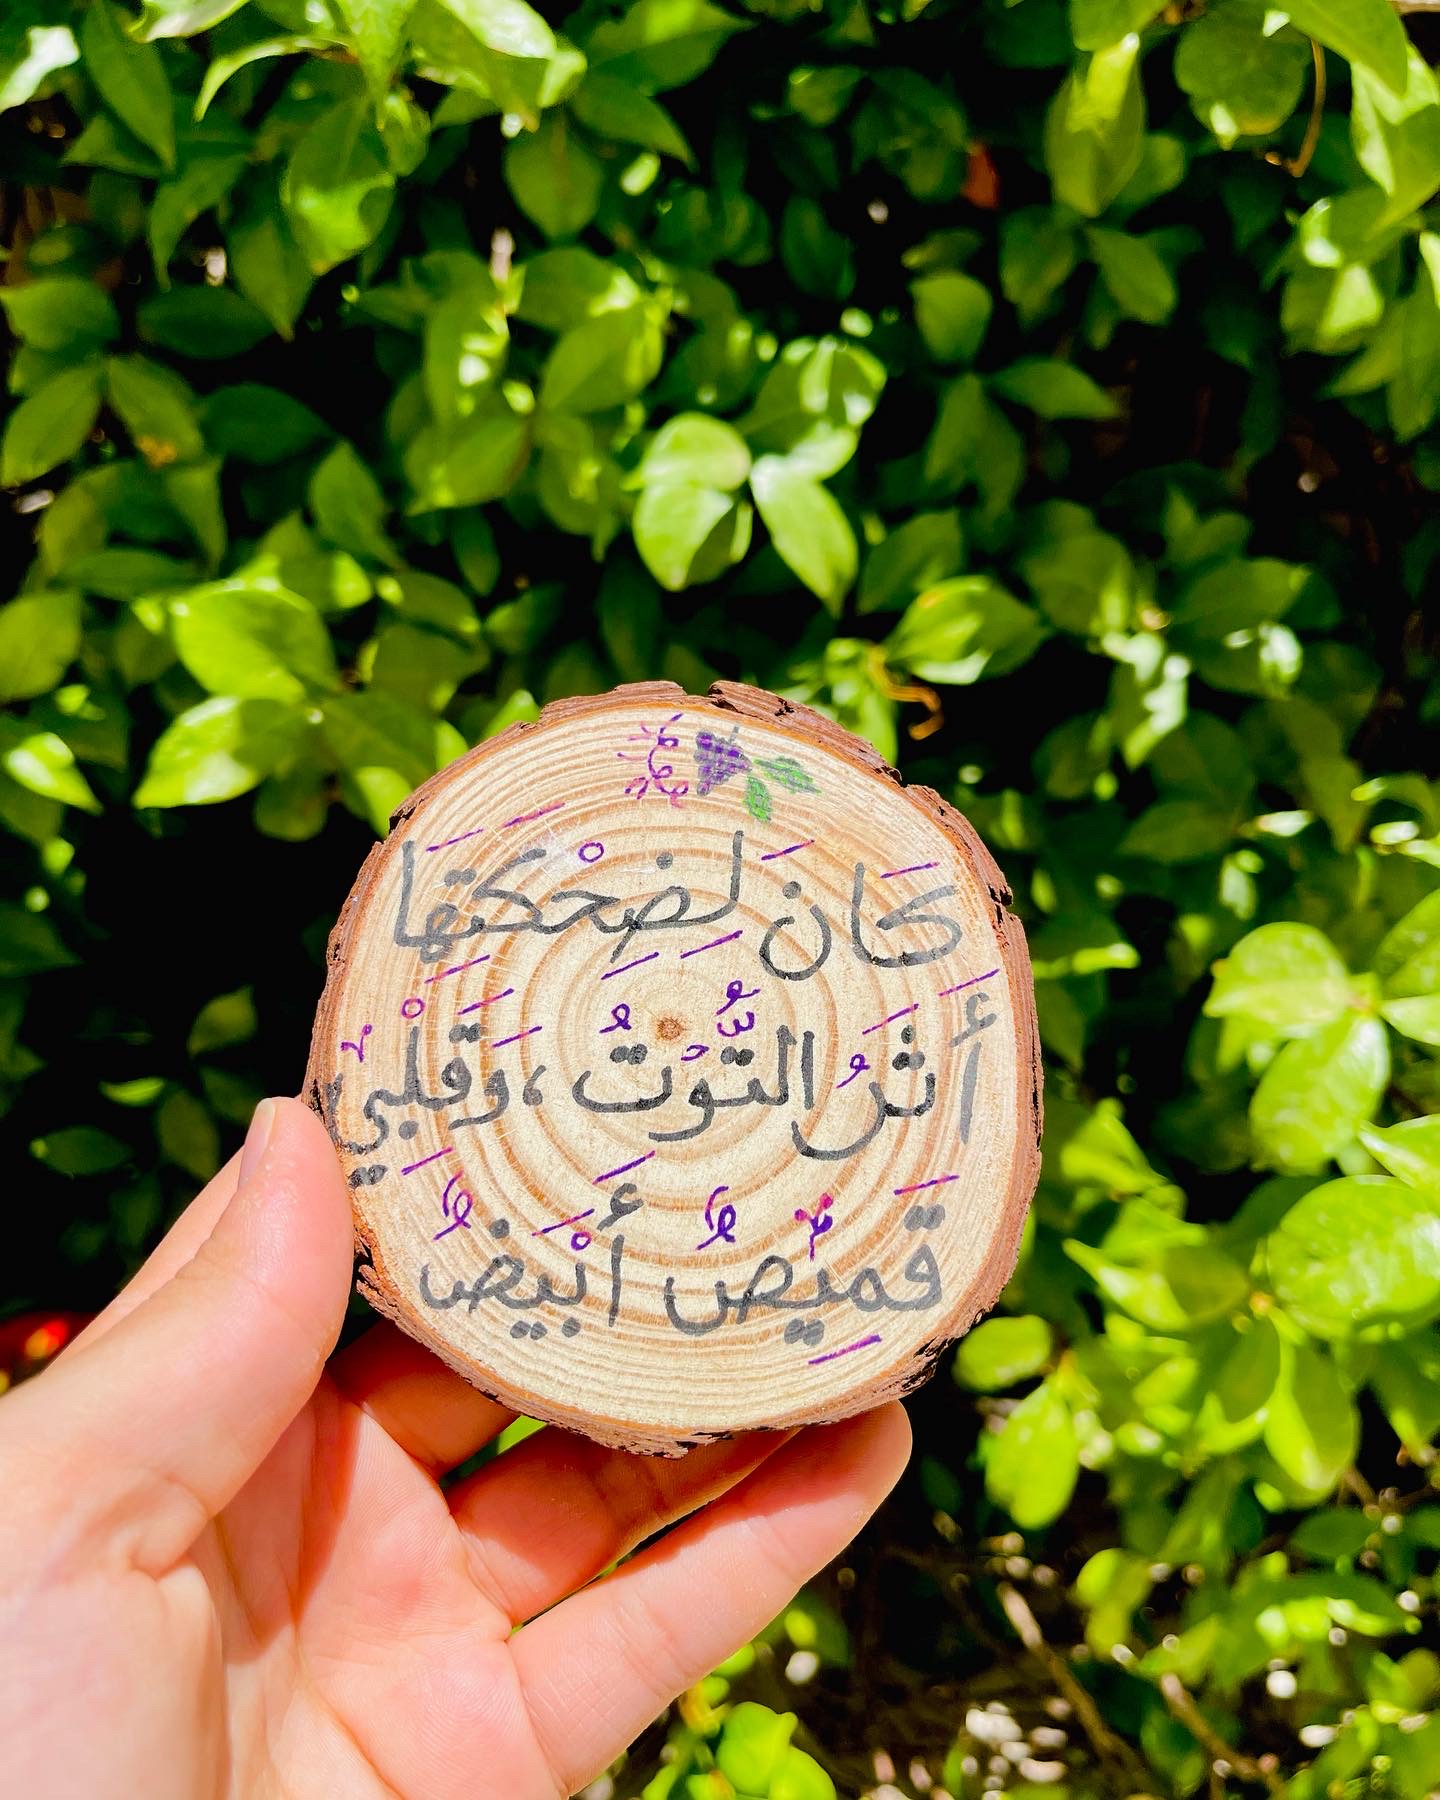 كَانَ لِضَحْكَتِهَا
أَثَرُ التُّوتُ ،وَقَلْبِي
قَمِيصٌ أَبْيَضٌ